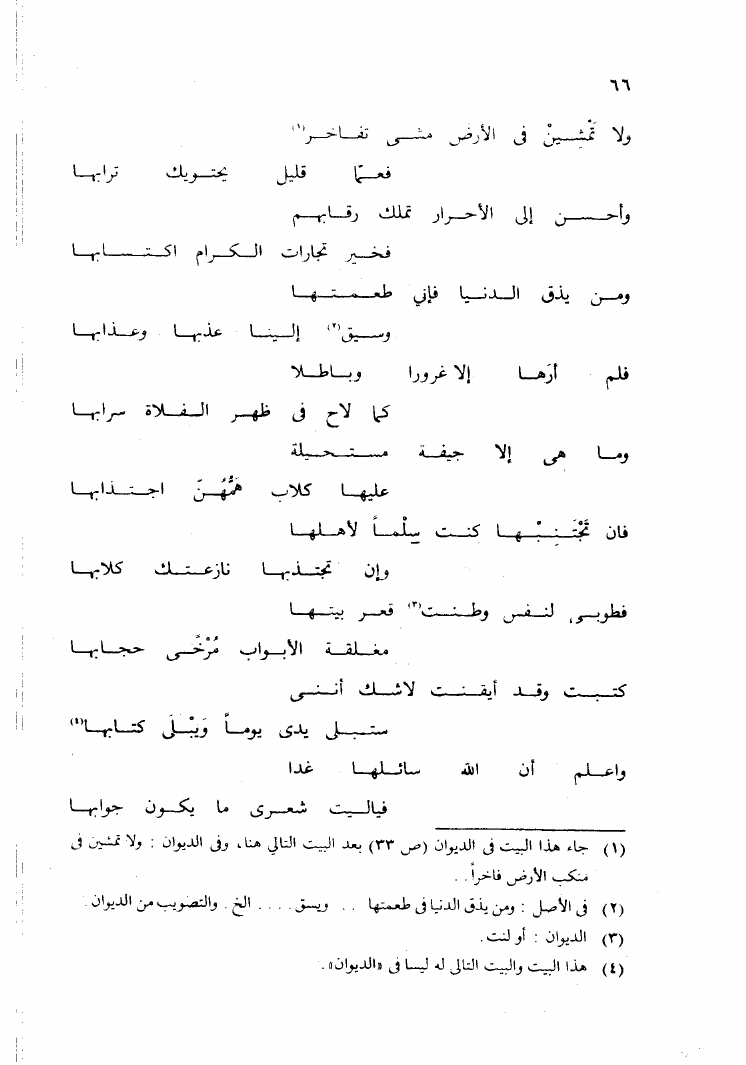 ٦٦
ولا تَمْشِينْ فى الأرض مشى تفاخر(١)
فعما قليل يحتويك ترابها
وأحسن إلى الأحرار تملك رقابهم
فخير تجارات الكرام اكتسابها
ومن يذق الدنيا فإني طعمتها
وسيق(٢) إلينا عذبها وعذابها
فلم أرَها إلا غرورا وباطلا
كما لاح فى ظهر الفلاة سرابها
وما هى إلا جيفة مستحيلة
عليها كلاب هَمُّهُنَّ اجتذابها
فان تَجْتَنِبْها كنت سِلْماً لأهلها
وإن تجتذبها نازعتك كلابها
فطوبى لنفس وطنت(٣) قعر بيتها
مغلقة الأبواب مُرْخًى حجابها
كتبت وقد أيقنت لاشك أننى
ستبلى يدى يوماً وَيَبْلَى كتابها(٤)
واعلم أن الله سائلها غدا
فياليت شعرى ما يكون جوابها
(١) جاء هذا البيت فى الديوان (ص ٣٣) بعد البيت التالي هنا، وفى الديوان : ولا تمشين فى
منكب الأرض فاخراً . .
(٢) فى الأصل : ومن يذق الدنيا فى طعمتها . . ويسق . . . . الخ . والتصويب من الديوان .
(٣) الديوان : أو لنت .
(٤) هذا البيت والبيت التالى له ليسا فى «الديوان» .